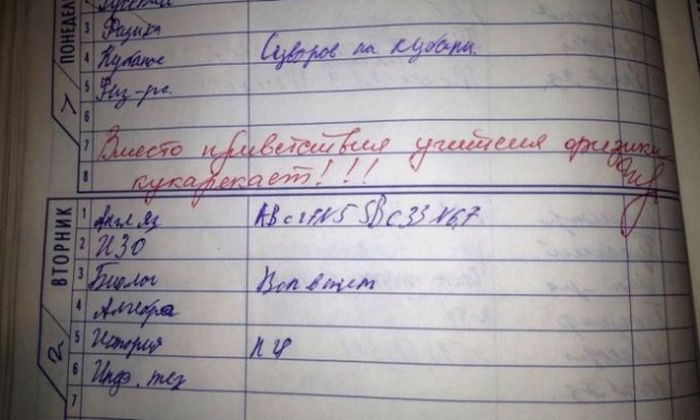 ПОНЕДЕЛ
Русский
3 Физика
4 Кубанов Суворов на кубани.
5 Физ-ра.
6
7 Вместо приветствия учителя физики
8 кукарекает!!!
ВТОРНИК
1 Англ яз АВ с 27 N5 SB с 33 N6,7
2 ИЗО
3 Биолог Воп в тет
4 Алгебра
5 История П 4
6 Инф. тех
7
2